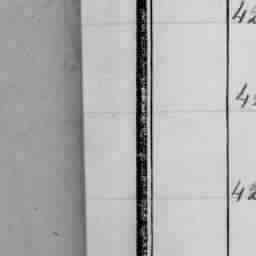 42
42
42